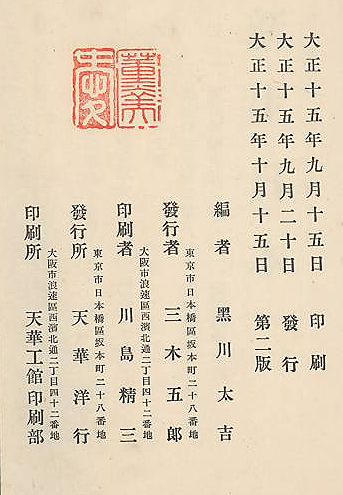 大正十五年九月十五日 印刷
大正十五年九月二十日 發行
大正十五年十月十五日 第二版
編者 黑川太吉
東京市日本橋區坂本町二十八番地
發行者 三木五郎
大阪市浪速區西濱北通二丁目四十二番地
印刷者 川島精三
東京市日本橋區坂本町二十八番地
發行所 天華洋行
大阪市浪速區西濱北通二丁目四十二番地
印刷所 天華工館印刷部